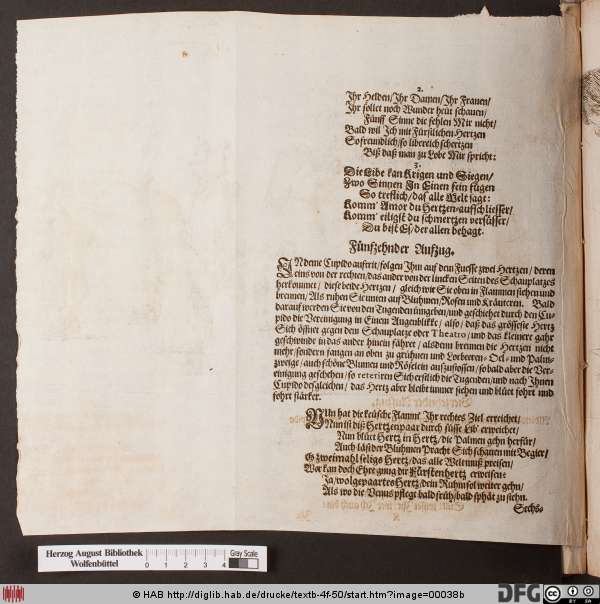 2.
Ihr Helden/Ihr Damen/Ihr Frauen/
Ihr sollet noch Wunder heüt schauen/
Fünff Sinne die fehlen Mir nicht/
Bald wil Ich mit Fürstlichen Hertzen
So freundlich/so libereich schertzen
Biß daß man zu Lobe Mir spricht:
3.
Die Libe kan Krigen und Sigen/
Zwo Sinnen In Einen fein fügen
So treflich/das alle Welt sagt:
Komm' Amor du Hertzen-aufschliesser/
Komm' eiligst du schmertzen versüsser/
Du bist Es/der allen behagt.
Fünfzehnder Aufzug.
INdeme Cupido auftrit/folgen Ihm auf dem Fuesse zwei Hertzen/ deren
eins von der rechten/das ander von der lincken Seiten des Schauplatzes
herkommet/ diese beide Hertzen/ gleich wie Sie oben in Flammen stehen und
brennen/Als ruhen Sie unten auf Bluhmen/Rosen und Kräutern. Bald
darauf werden Sie von den Tugenden ümgeben/und geschiehet durch den Cu-
pido die Vereinigung in Einem Augenblikke/ also/ daß das grössesie Hertz
Sich öffnet gegen dem Schauplatze oder Theatro/und das kleinere gahr
geschwinde in das ander hinein fähret/ alsdenn brennen die Hertzen nicht
mehr/sondern fangen an oben zu grühnen und Lorbeeren- Oel- und Palm-
zweige/auch schöne Blumen und Röselein aufzustossen/so bald aber die Ver-
einigung geschehen/so retetiren Sich erstlich die Tugenden/und nach Ihnen
Cupido desgleichen/ das Hertz aber bleibt immer stehen und blüet fohrt und
fohrt stärker.
NUn hat die keüsche Flamm' Ihr rechtes Ziel erreichet/
Nun ist diß Hertzenpaar durch süsse Lib' erweichet/
Nun blüet Hertz in Hertz/die Palmen gehn herfür/
Auch läst der Bluhmen Pracht Sich schauen mit Begier/
O zweimahl seligs Hertz/das alle Welt muß preisen/
Wer kan doch Ehre gnug dir Fürstenhertz erweisen:
Ja/wolgepaartes Hertz/dein Ruhm sol weiter gehn/
Als wo die Venus pflegt bald früh/bald sphät zu stehn.
Sechs-
Herzog August Bibliothek
Wolfenbüttel
0 1 2 3 4 Gray Scale
© HAB http://diglib.hab.de/drucke/textb-4f-50/start.htm?image=00038b
DFG
CC BY SA